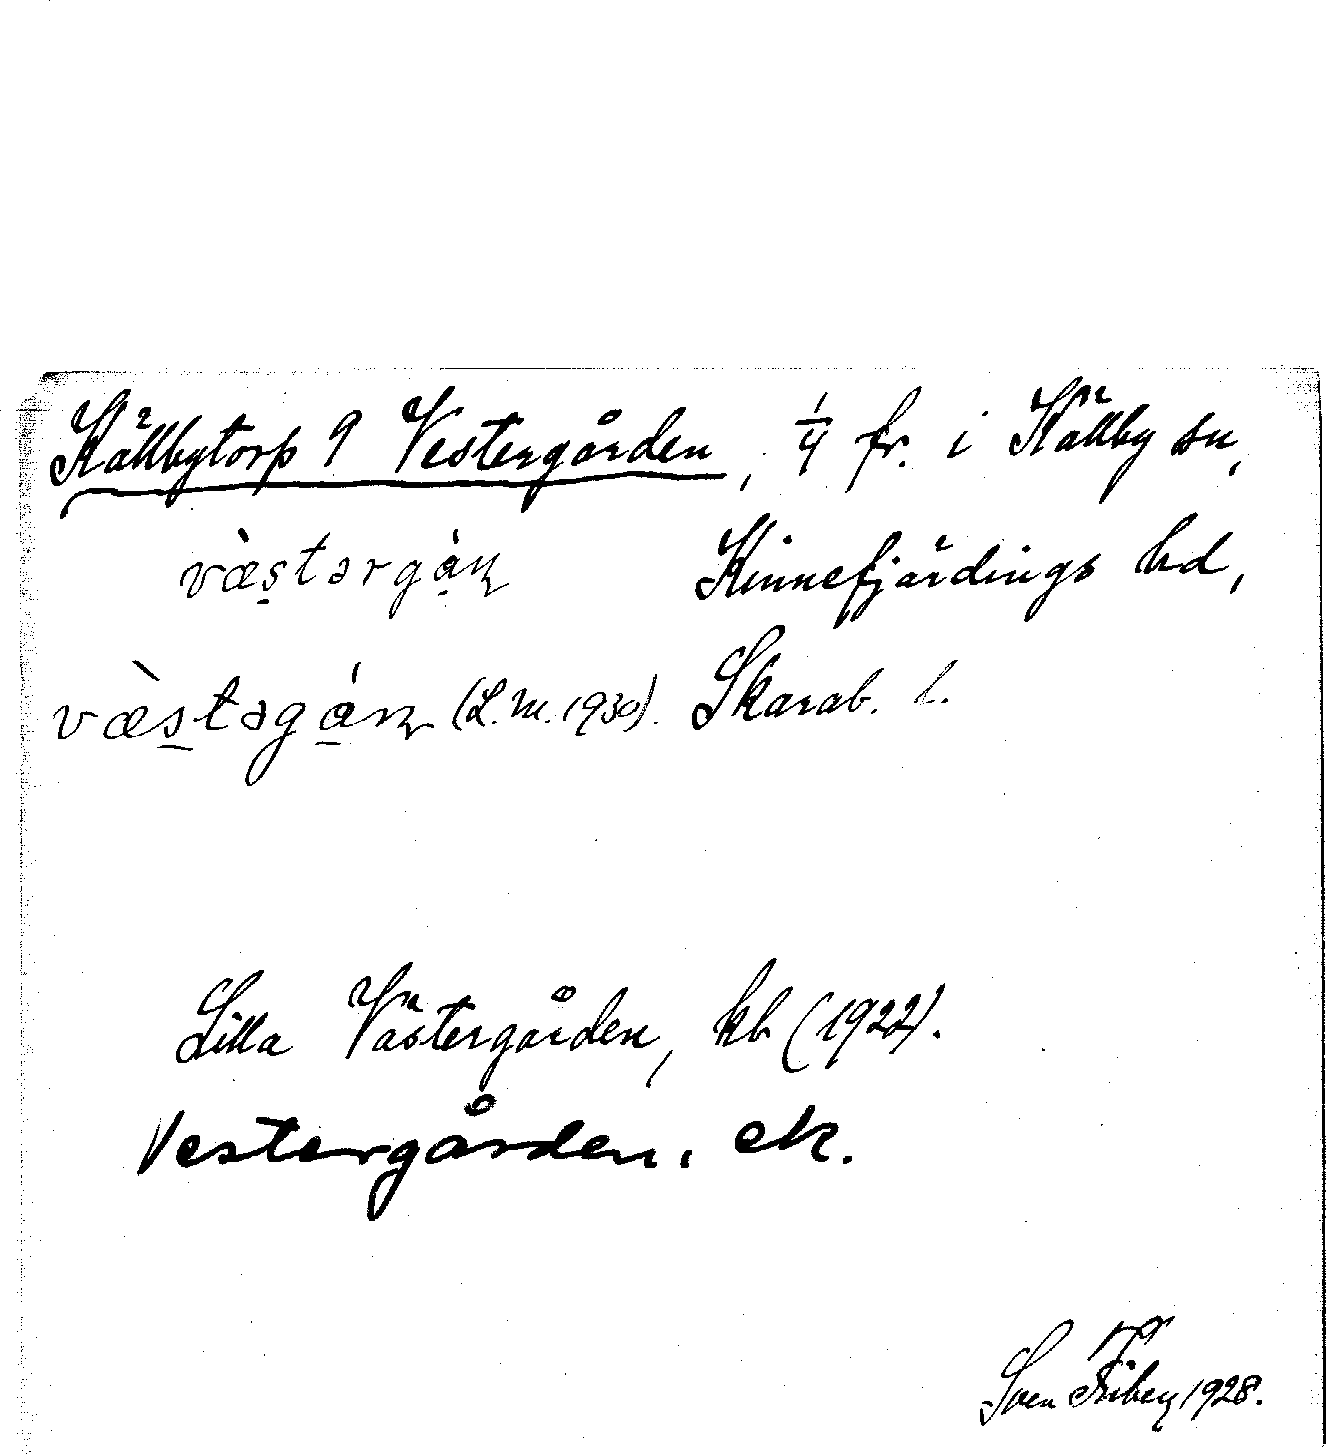 Källbytorp 9 Vestergården, 1/4 fr. i Källby sn,
væ̀stərgán Kinnefjärdings hd,
væ̀stəgán (L.M. 1930). Skarab. l.
Lilla Västergården, kb (1922).
Vestergården. ek.
Sven Friberg 1928.